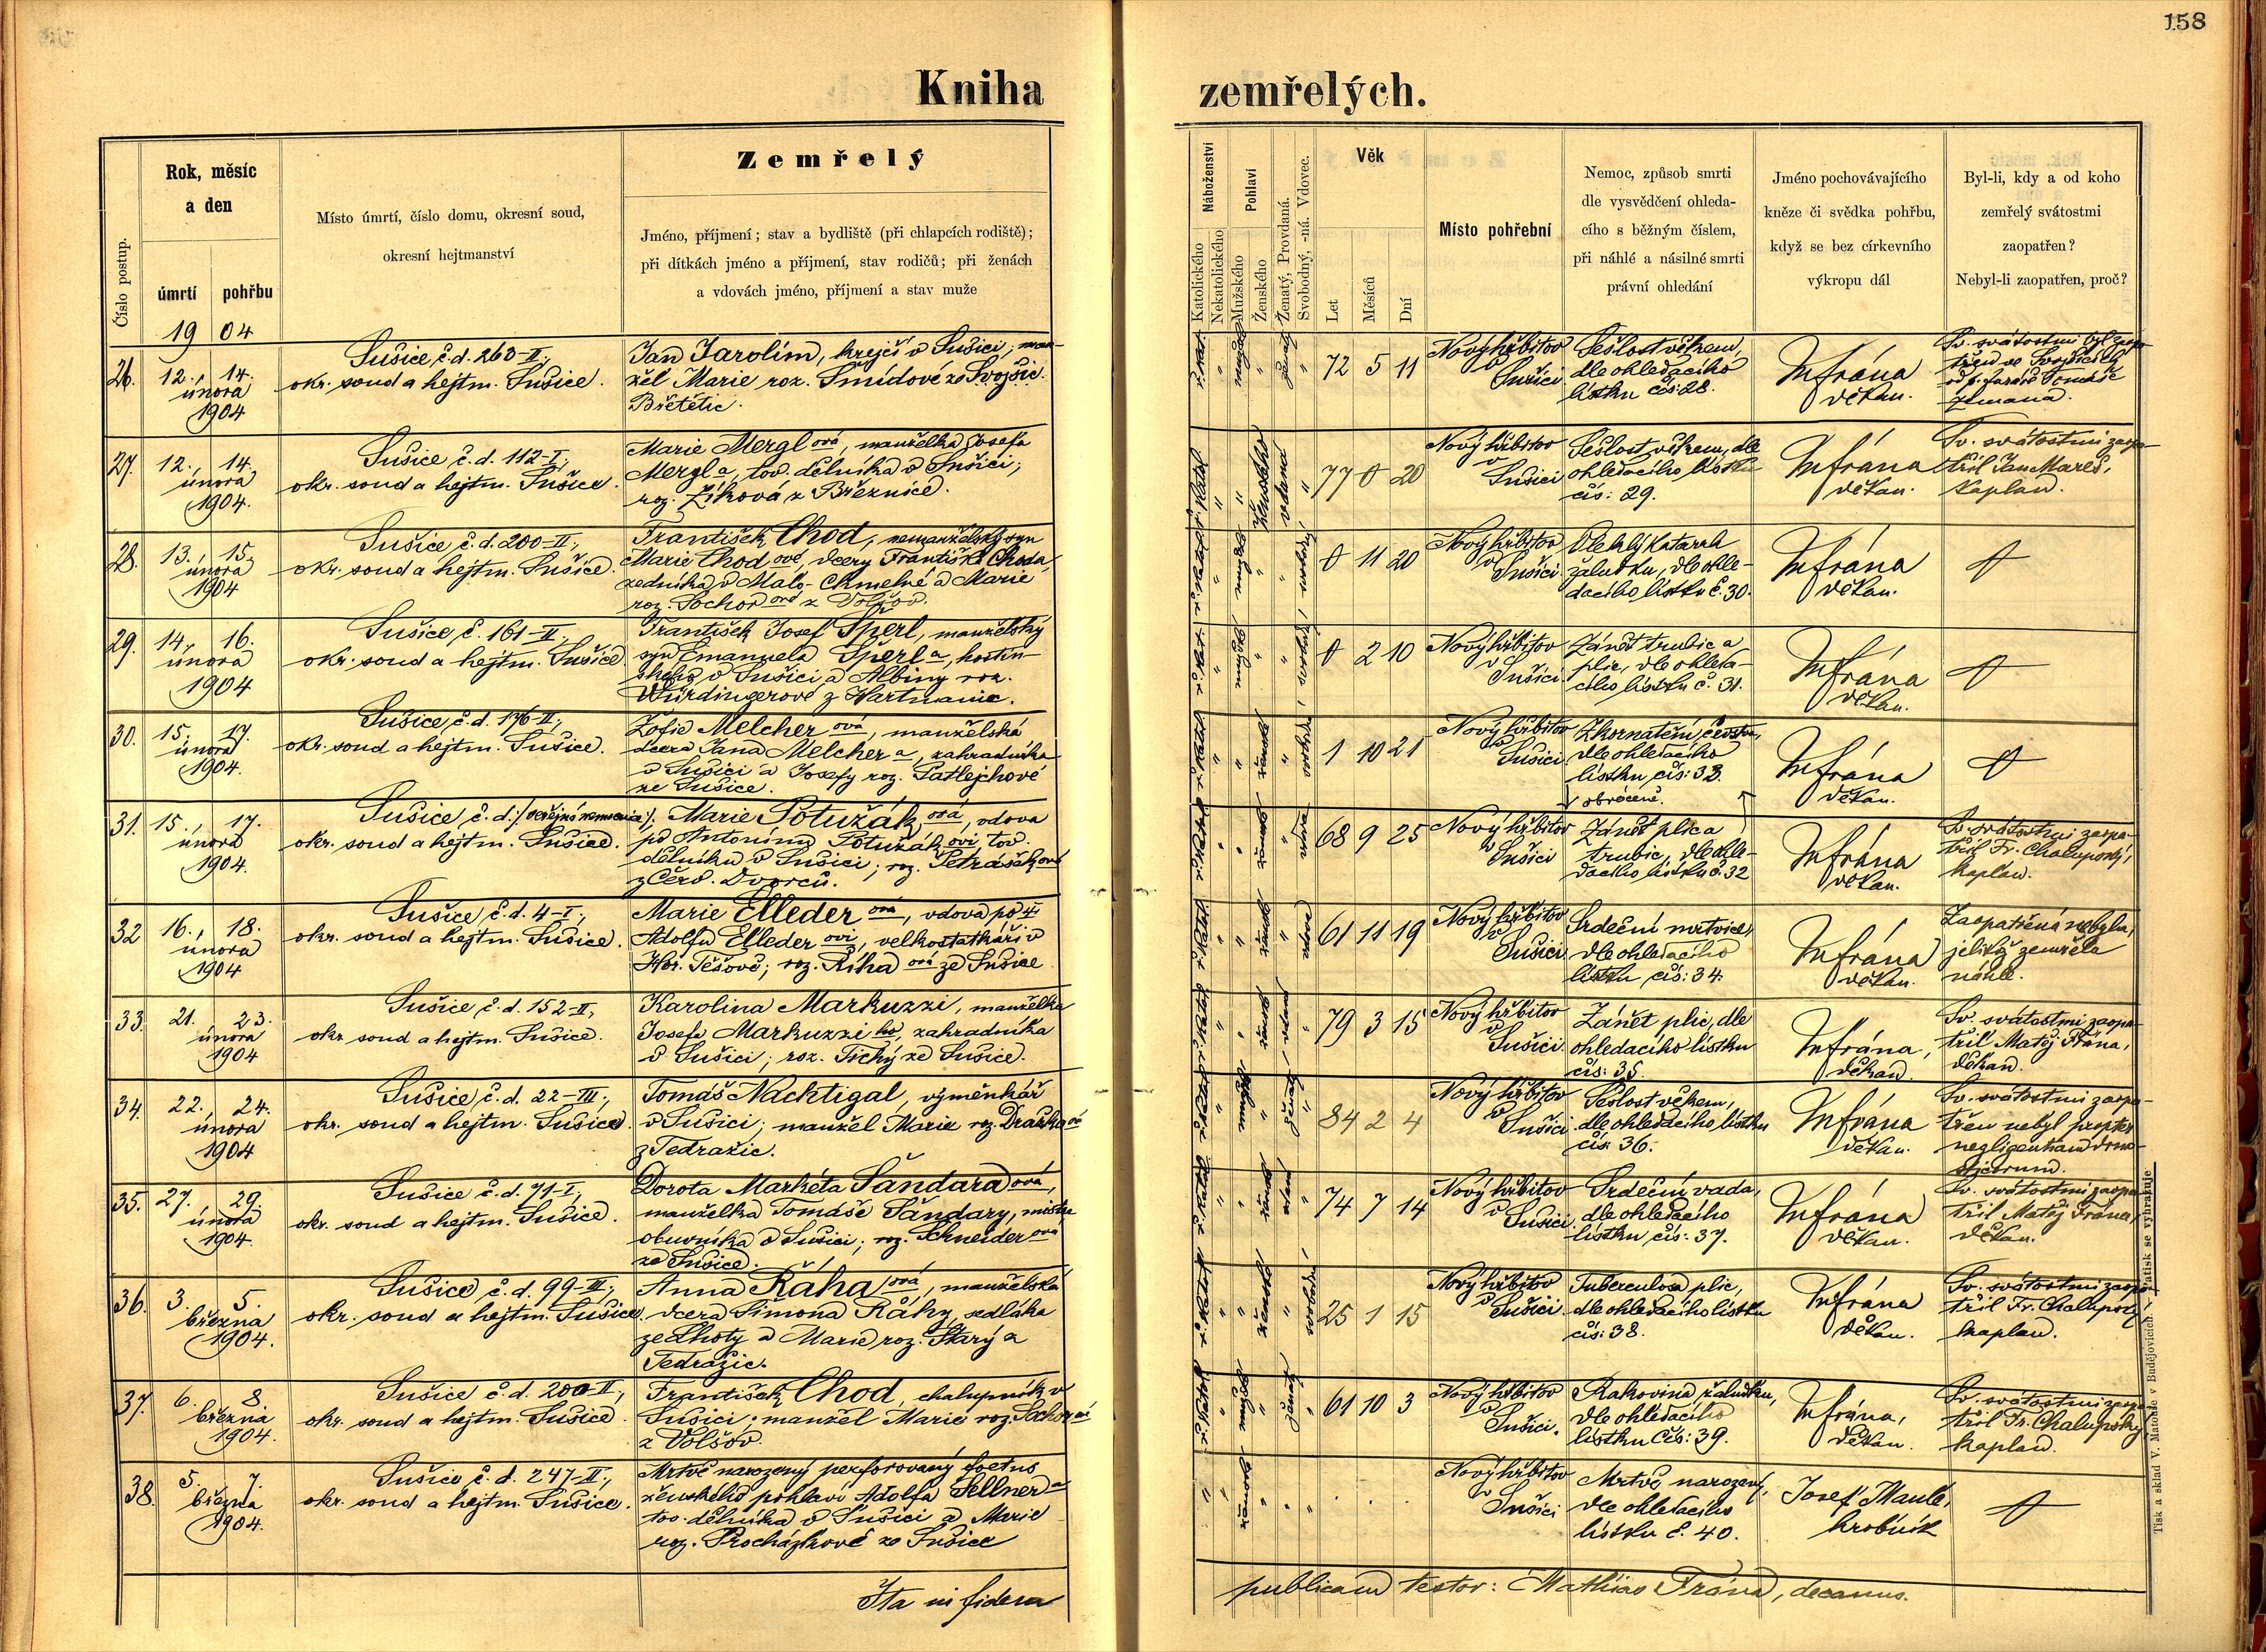 158
Kniha
zemřelých.
Číslo postup.
Rok, měsíc
a den
úmrtí
pohřbu
19 04
Místo úmrtí, číslo domu, okresní soud,
okresní hejtmanství
Zemřelý
Jméno, příjmení; stav a bydliště (při chlapcích rodiště);
při dítkách jméno a příjmení, stav rodičů; při ženách
a vdovách jméno, příjmení a stav muže
Náboženství
Katolického
Nekatolického
Pohlaví
Mužského
Ženského
Ženatý, Provdaná.
Svobodný, -ná. Vdovec.
Věk
Let
Měsíců
Dní
Místo pohřební
Nemoc, způsob smrti
dle vysvědčení ohleda-
cího s běžným číslem,
při náhlé a násilné smrti
právní ohledání
Jméno pochovávajícího
kněze či svědka pohřbu,
když se bez církevního
výkropu dál
Byl-li, kdy a od koho
zemřelý svátostmi
zaopatřen?
Nebyl-li zaopatřen, proč?
26. 12., 14.
února
1904
Sušice, č.d. 260-II.,
okr. soud a hejtm. Sušice.
Jan Jarolím, krejčí v Sušici, man-
žel Marie roz. Šmídové ze Svojšic.
Břetětic.
72 5 11
Nový hřbitov
v
Sušici
Sešlost věkem,
dle ohledacího
lístku čís: 28.
M frána
děkan.
Sv. svátostmi byl zaopa-
třen ve Svojšicích
od p. faráře Tomáše
Zemana.
27. 12., 14.
února
1904.
Sušice č.d. 112-I.,
okr. soud a hejtm. Sušice.
Marie Merglová, manželka Josefa
Mergla, tov. dělníka v Sušici;
roz. Zíková z Březnice.
77 0 20
Nový hřbitov
v
Sušici
Sešlost věkem, dle
ohledacího lístku
čís: 29.
M frána
děkan.
Sv. svátostmi zaopa-
třil Jan Mareš,
kaplan.
28. 13., 15.
února
1904
Sušice č.d. 200-II.,
okr. soud a hejtm. Sušice.
František Chod, nemanželský syn
Marie Chodové, dcery Františka Choda,
zedníka v Malo-Chmelné a Marie
roz. Sochorové z Volšov.
0 11 20
Nový hřbitov
v
Sušici
Vleklý katarrh
žaludku, dle ohle-
dacího lístku č. 30.
M frána
děkan.
29. 14., 16.
února
1904
Sušice, č. 161-II.,
okr. soud a hejtm. Sušice
František Josef Šperl, manželský
syn Emanuela Šperla, hostin-
ského v Sušici a Albiny roz.
Würdingerové z Hartmanic.
0 2 10
Nový hřbitov
v
Sušici.
Zánět trubic a
plic, dle ohleda-
cího lístku č. 31.
M frána
děkan.
30. 15. 17.
února
1904.
Sušice, č.d. 176-II.,
okr. soud a hejtm. Sušice.
Žofie Melcherová, manželská
dcera Jana Melchera, zahradníka
v Sušici a Josefy roz. Patlejchové
ze Sušice.
1 10 21
Nový hřbitov
v
Sušici
Zkornatění čevstva,
dle ohledacího
lístku čís: 33.
obráceně.
M frána
děkan.
31. 15., 17.
února
1904.
Sušice, č.d. /:veřejná nemocnice:/.
okr. soud a hejtm. Sušice.
Marie Potužáková, vdova
po Antonínu Potužákovi, tov.
dělníku v Sušici; roz. Petrášková
z Červ. Dvorců.
68 9 25
Nový hřbitov
v
Sušici
Zánět plic a
trubic, dle ohle-
dacího lístku č. 32
M frána
děkan.
Sv. svátostmi zaopa-
třil Fr. Chalupský,
kaplan.
32 16., 18.
února
1904
Sušice, č.d. 4-I.,
okr. soud a hejtm. Sušice.
Marie Ellederová, vdova po
Adolfu Ellederovi, velkostatkáři v
Hor. Těšově; roz. Říhová ze Sušice
61 11 19
Nový hřbitov
v
Sušici
Srdeční mrtvice,
dle ohledacího
lístku čís: 34.
M frána
děkan.
Zaopatřena nebyla,
jelikož zemřela
náhle.
33. 21. 23.
února
1904
Sušice č.d. 152-II,
okr. soud a hejtm. Sušice.
Karolina Markuzzi, manželka
Josefa Markuzziho, zahradníka
v Sušici; roz. Tichý ze Sušice.
79 3 15
Nový hřbitov
v
Sušici.
Zánět plic, dle
ohledacího lístku
čís: 35.
M frána,
děkan.
Sv. svátostmi zaopa-
třil Matěj Frána,
děkan.
34. 22., 24.
února
1904
Sušice, č.d. 22-III.,
okr. soud a hejtm. Sušice.
Tomáš Nachtigal, výměnkář
v Sušici; manžel Marie roz. Draské
z Tedražic.
84 2 4
Nový hřbitov
v
Sušici
Sešlost věkem,
dle ohledacího lístku
čís. 36.
M frána
děkan.
Sv. svátostmi zaopa-
třen nebyl propter
negligentiam dome-
sticorum.
35. 27. 29.
února
1904.
Sušice č.d. 71-I,
okr. soud a hejtm. Sušice.
Dorota Markéta Šandarová,
manželka Tomáše Šandary, mistra
obuvníka v Sušici; roz. Schneiderová
ze Sušice.
74 7 14
Nový hřbitov
v
Sušici.
Srdeční vada,
dle ohledacího
lístku čís: 37.
M frána
děkan.
Sv. svátostmi zaopa-
třil Matěj Frána,
děkan.
36. 3. 5.
března
1904.
Sušice č.d. 99-III.,
okr. soud a hejtm. Sušice.
Anna Řáhaová, manželská
dcera Šimona Řáhy, sedláka
ze Lhoty a Marie roz. Starý z
Tedražic.
25 1 15
Nový hřbitov
v
Sušici.
Tuberculosa plic,
dle ohledacího lístku
čís: 38.
M frána
děkan.
Sv. svátostmi zaopa-
třil Fr. Chalupský
kaplan.
37. 6. 8.
března
1904.
Sušice č.d. 200-II.,
okr. soud a hejtm. Sušice.
František Chod, chalupník v
Sušici; manžel Marie roz. Sochorové
z Volšov.
61 10 3
Nový hřbitov
v
Sušici.
Rakovina žaludku,
dle ohledacího
lístku čís: 39.
M frána,
děkan.
Sv. svátostmi zaopa-
třil Fr. Chalupský
kaplan.
38. 5. 7.
března
1904.
Sušice č.d. 247-II.,
okr. soud a hejtm. Sušice.
Mrtvě narozený perforovaný foetus
ženského pohlaví Adolfa Sellnera
tov. dělníka v Sušici a Marie
roz. Procházkové ze Sušice
Nový hřbitov
v
Sušici
Mrtvě narozený,
dle ohledacího
lístku č. 40.
Josef Maule,
hrobník
Ita in fidem
publicam testor: Mathias Frána, decanus.
Tisk a sklad V. Matouše v Budějovicích. — Patisk se vyhrazuje